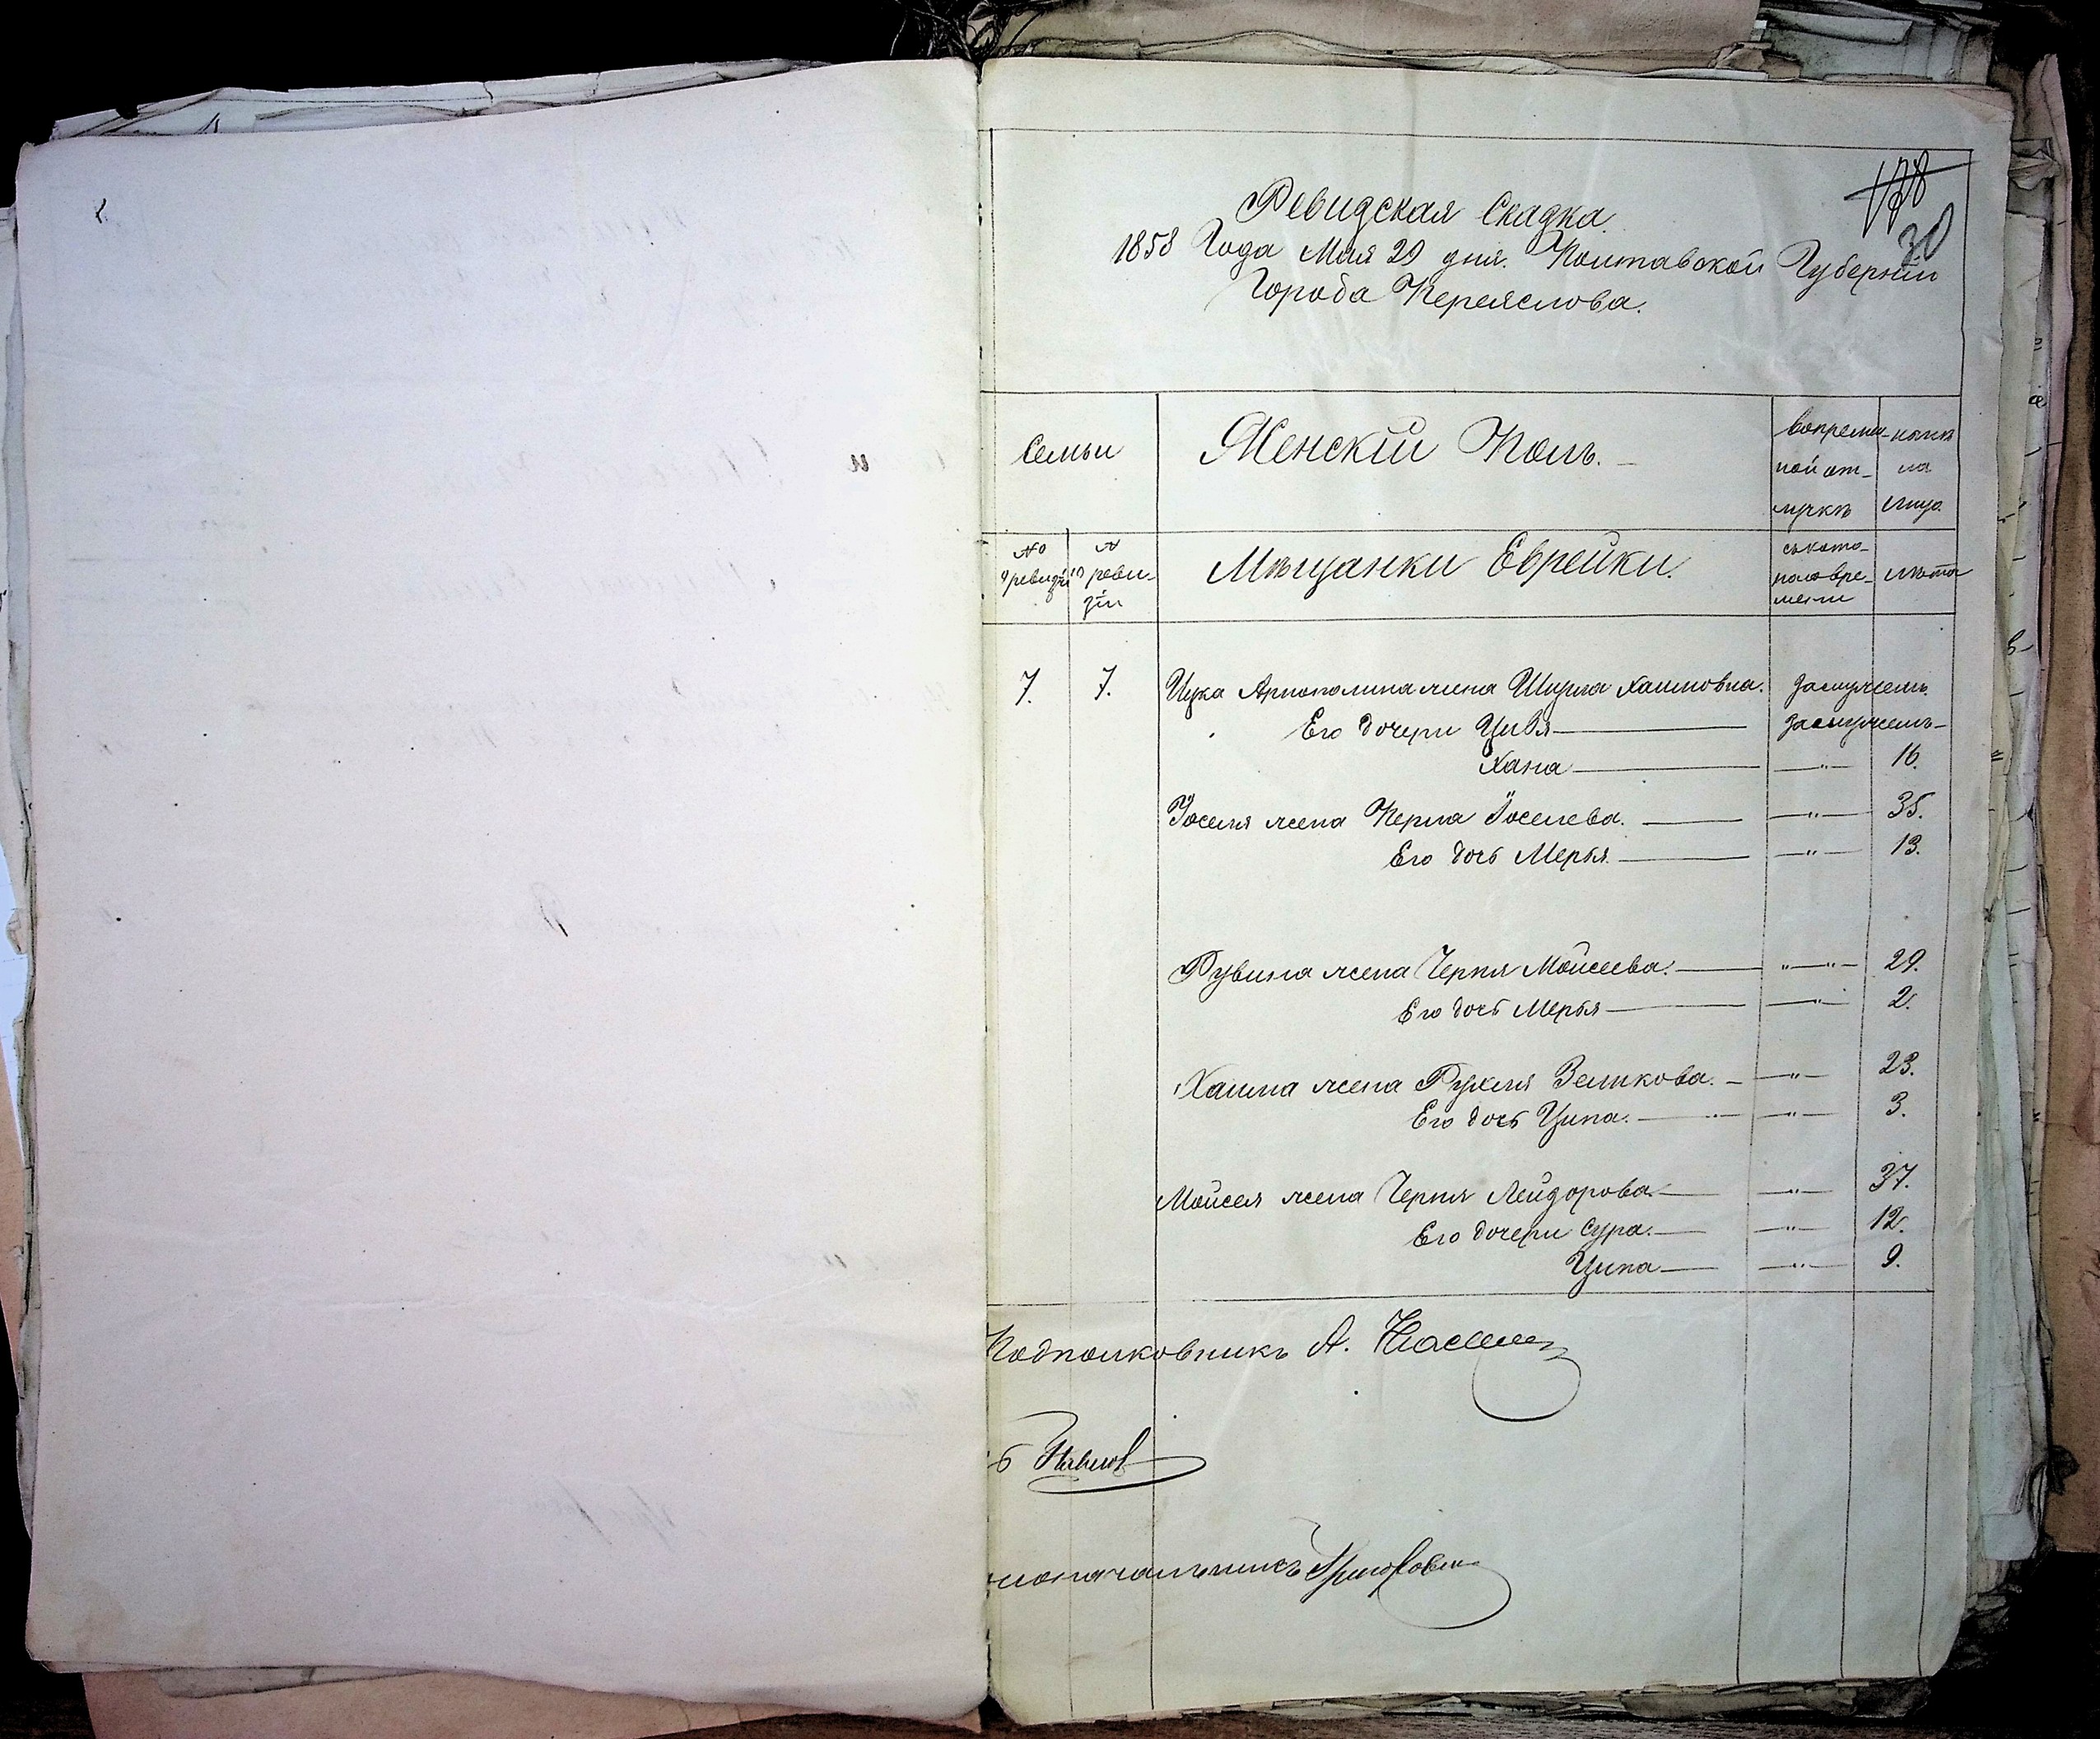 178
30
Ревидская Скадка.
1858 Года Мая 29 дня. Полтавской Губерніи
Города Переяслова.
Семьи
Женскій Полъ.
вовремен-
ной от-
лучкѣ
нынѣ
на
лицо.
№
9 ревизіи
№
10 реви-
зіи
Мѣщанки Еврейки.
съкото-
раговре-
мени
лѣта
7. 7. Ицка Арпополина жена Шифра Хаимовна. Замужемъ.
Его дочери Цивя Замужемъ
Хана — " — 16.
Іоселя жена Перла Іоселева. — " — 35.
Его дочь Мерья. — " — 13.
Рувина жена Черня Мойсеева. — " — " — 29.
Его дочь Мерья — " — 2.
Хаима жена Рухля Зеликова. — " — 23.
Его дочь Ципа. — " — 3.
Мойсея жена Черня Лейзорова — " — 37.
Его дочери Сура. — " — 12.
Ципа — " — 9.
Подполковникъ А.